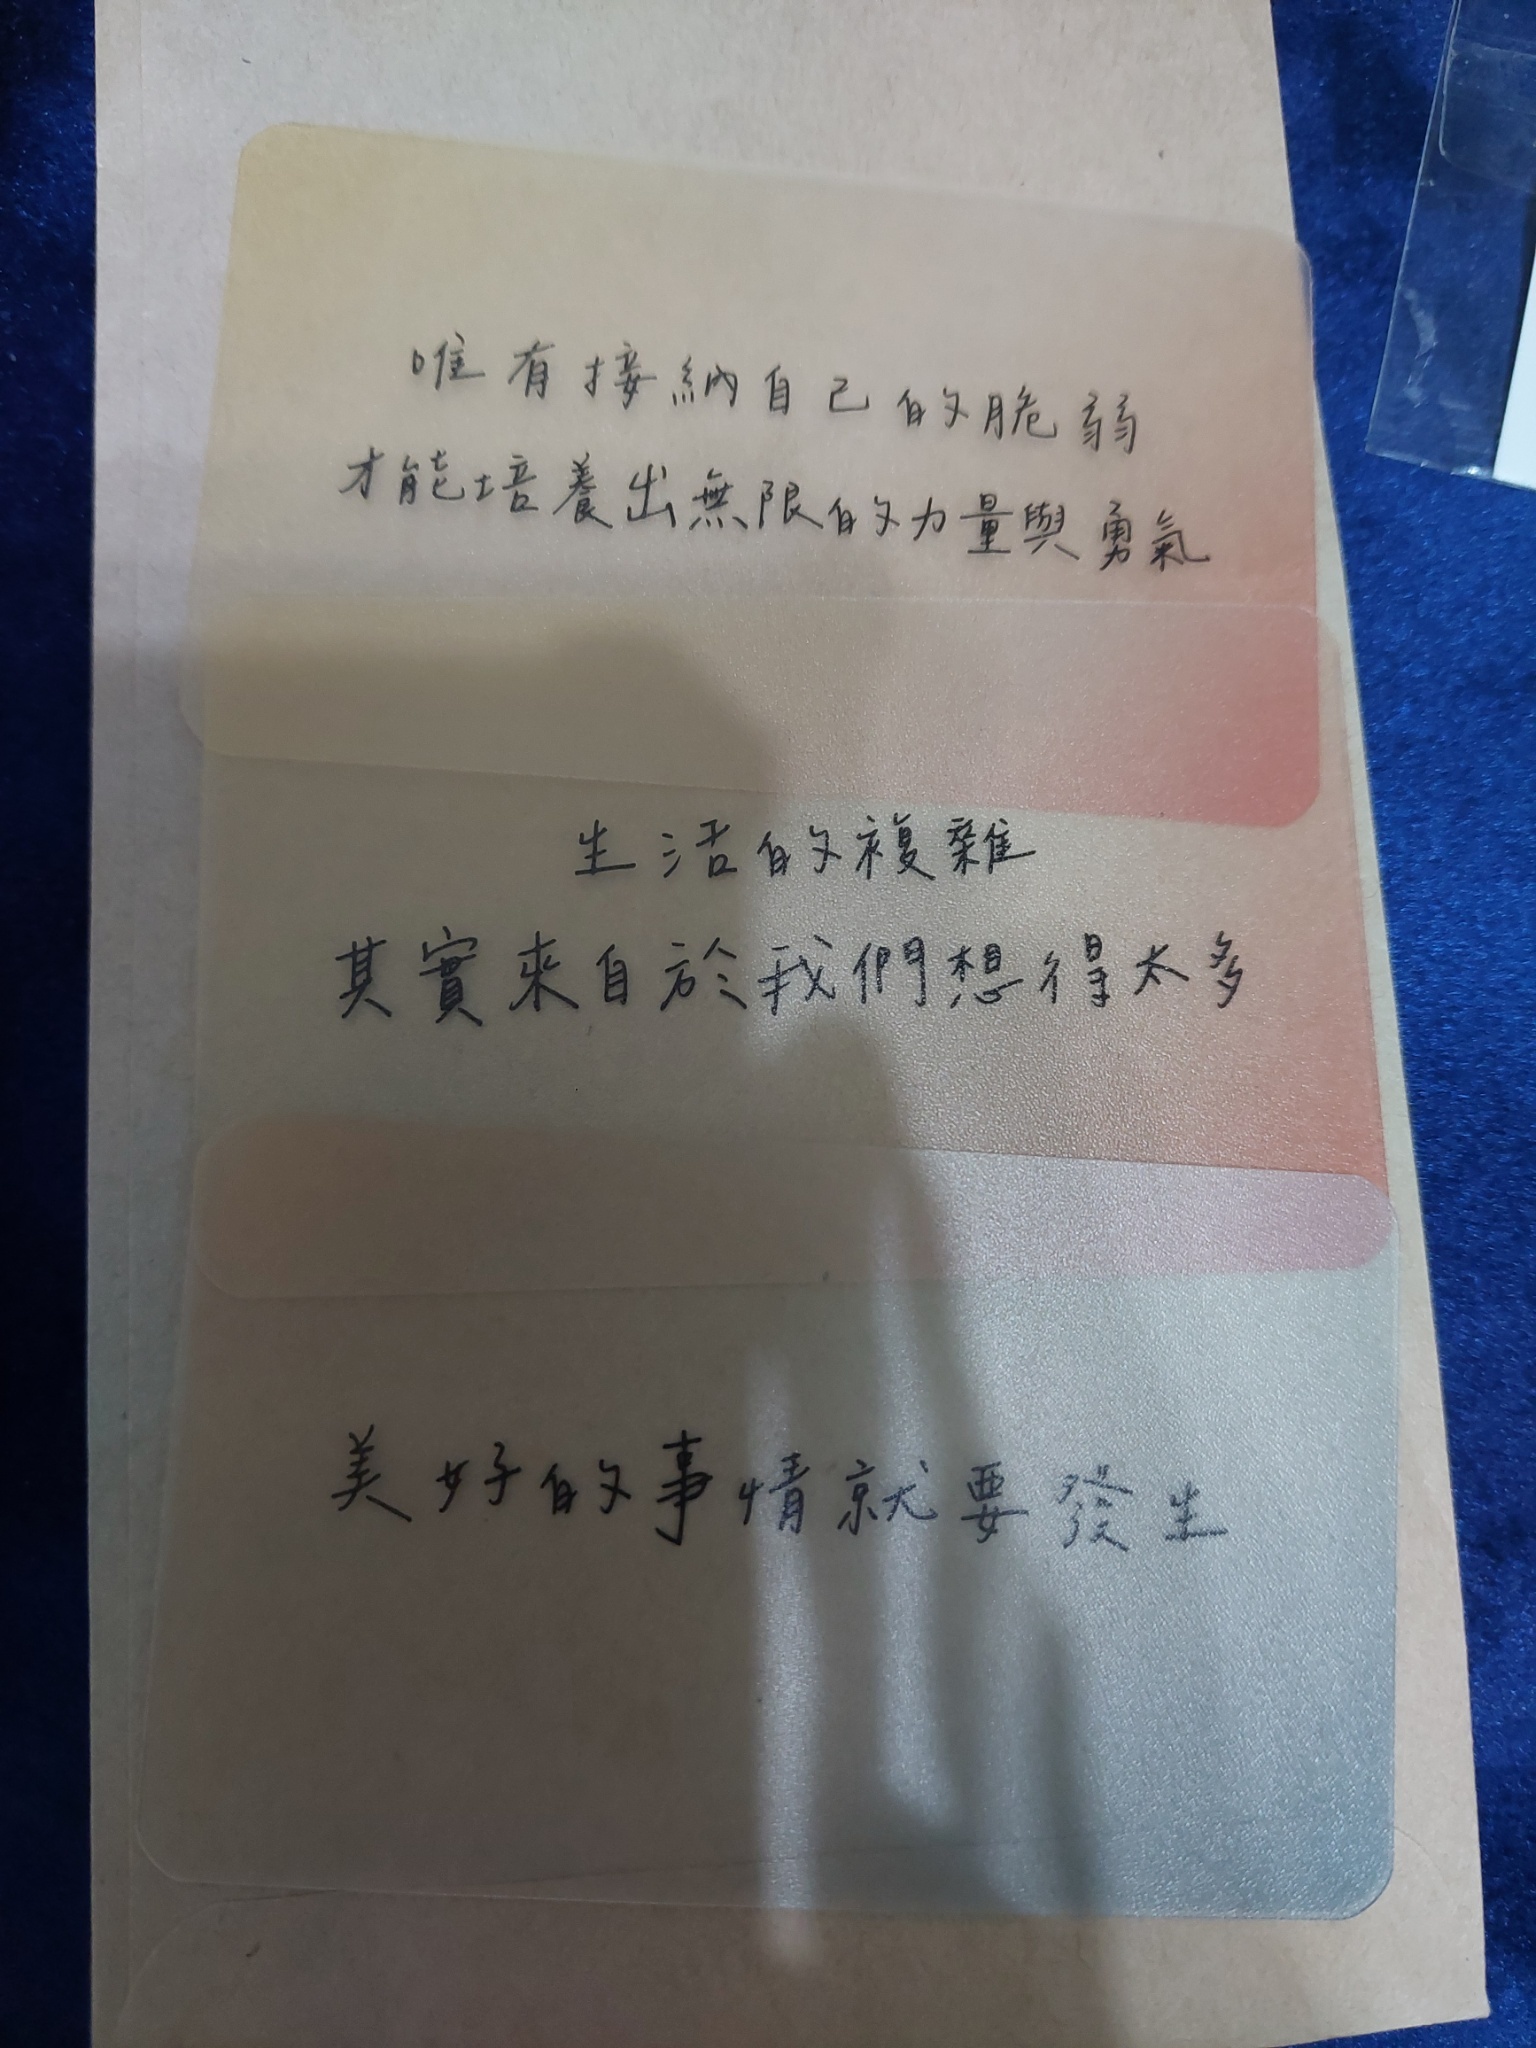 唯有接納自己的脆弱
才能培養出無限的力量與勇氣
生活的複雜
其實來自於我們想得太多
美好的事情就要發生